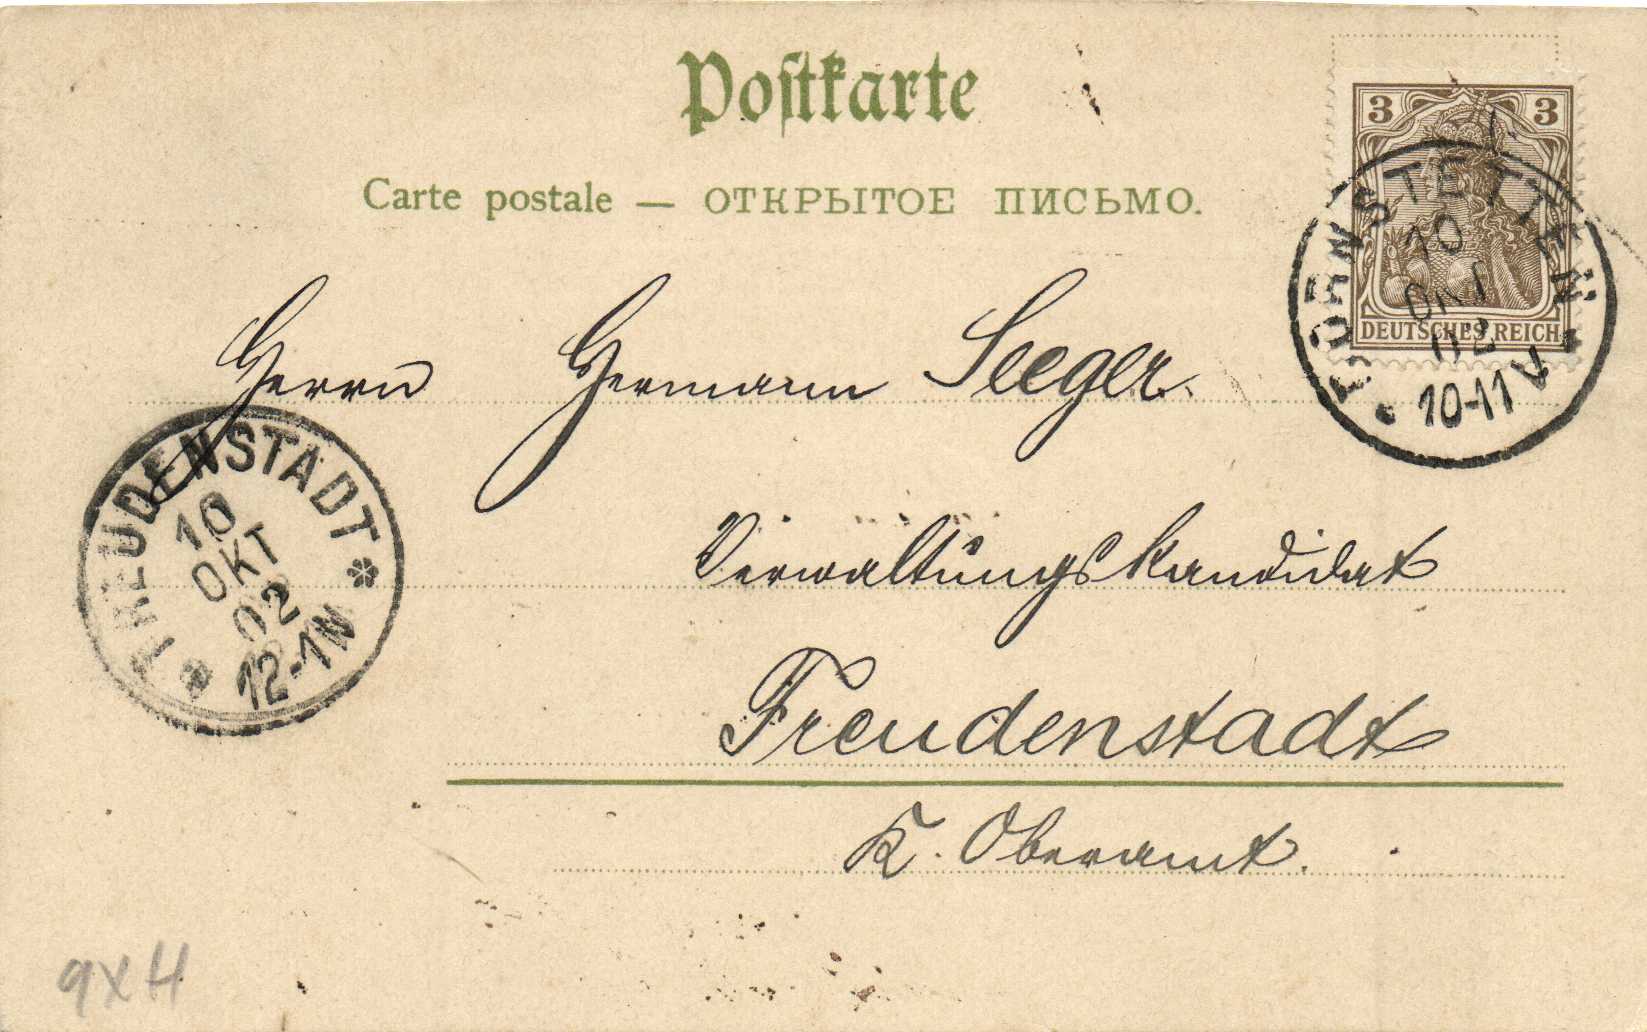 Postkarte
Carte postale — ОТКРЫТОЕ ПИСЬМО.
3 3
DEUTSCHES REICH
DORNSTETTEN
10
OKT
02
10-11 V
Herrn Hermann Seeger.
FREUDENSTADT
10
OKT
02
12-1N
Verwaltungskandidat
Freudenstadt
K. Oberamt.
9XH